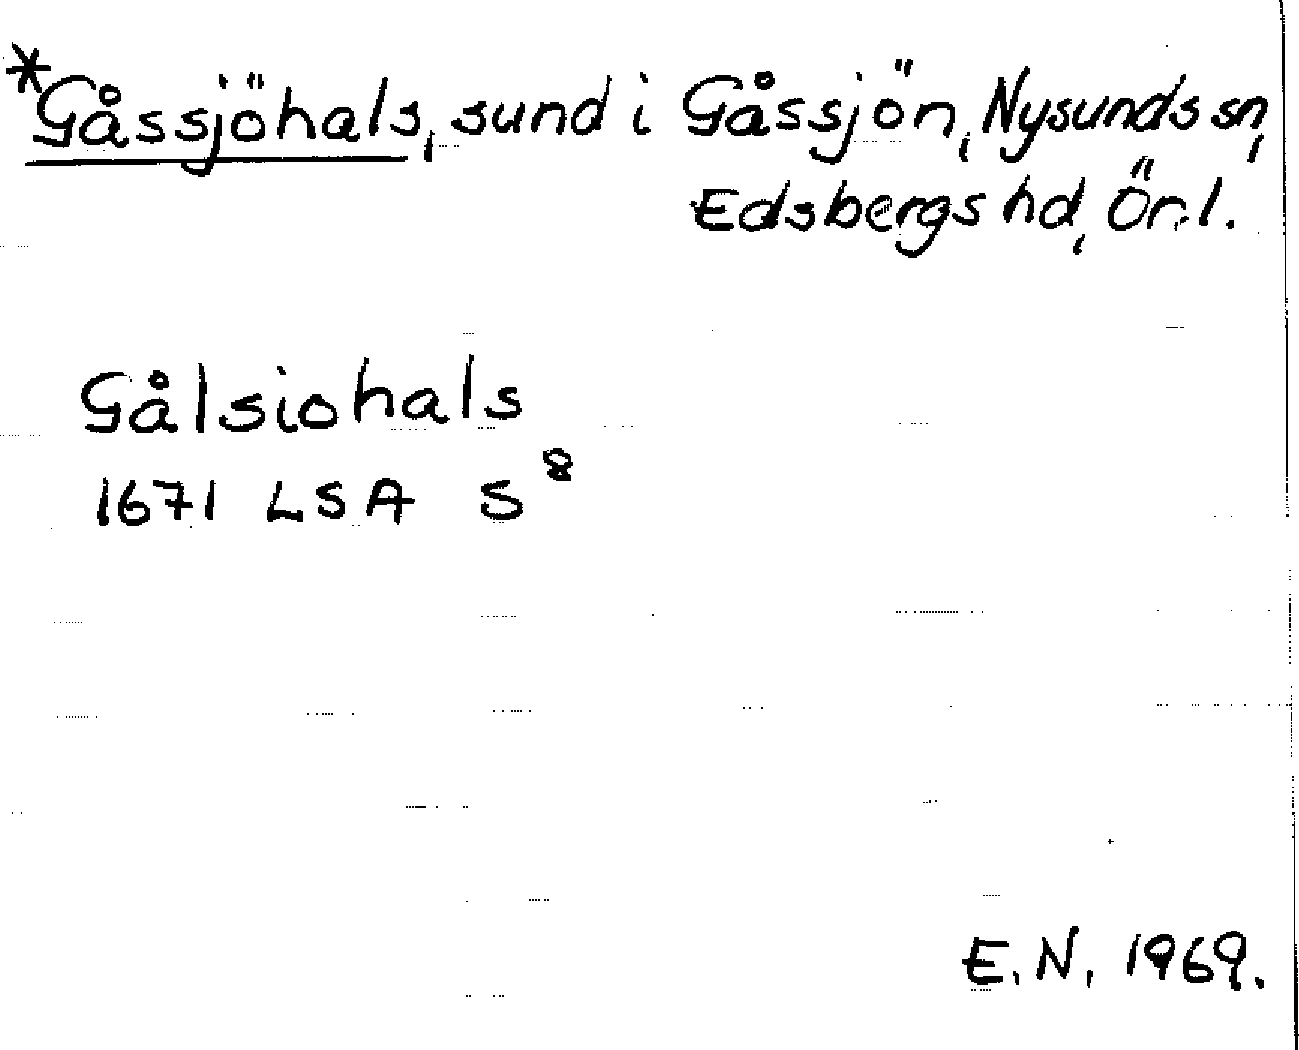 *Gåssjöhals, sund i Gåssjön, Nysunds sn,
Edsbergs hd, Ör. l.
Gålsiohals
1671 LSA S⁸
E. N. 1969.